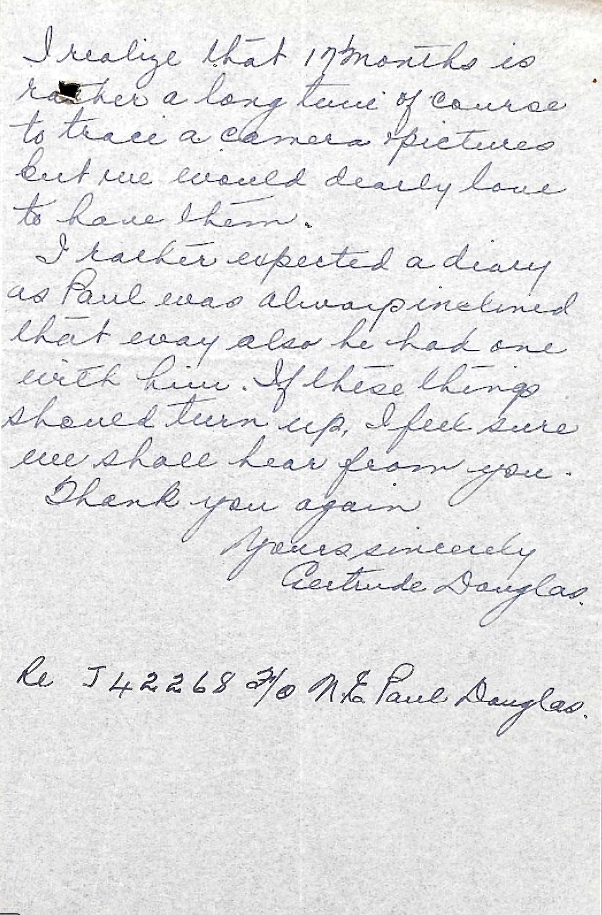 I realize that 17 months is
rather a long time of course
to trace a camera & pictures
but we would dearly love
to have them.
I rather expected a diary
as Paul was always inclined
that way also he had one
with him. If these things
should turn up, I feel sure
we shall hear from you.
Thank you again
Yours sincerely
Gertrude Douglas.
Re J42268 F/O N.E Paul Douglas.